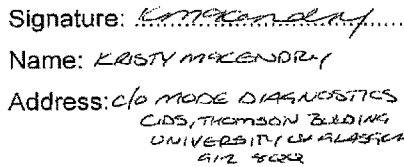 Signature: K McKendry
Name: KRISTY MCKENDRY
Address: c/o MODE DIAGNOSTICS
CIDS, THOMSON BUILDING
UNIVERSITY OF GLASGOW
G12 8QQ